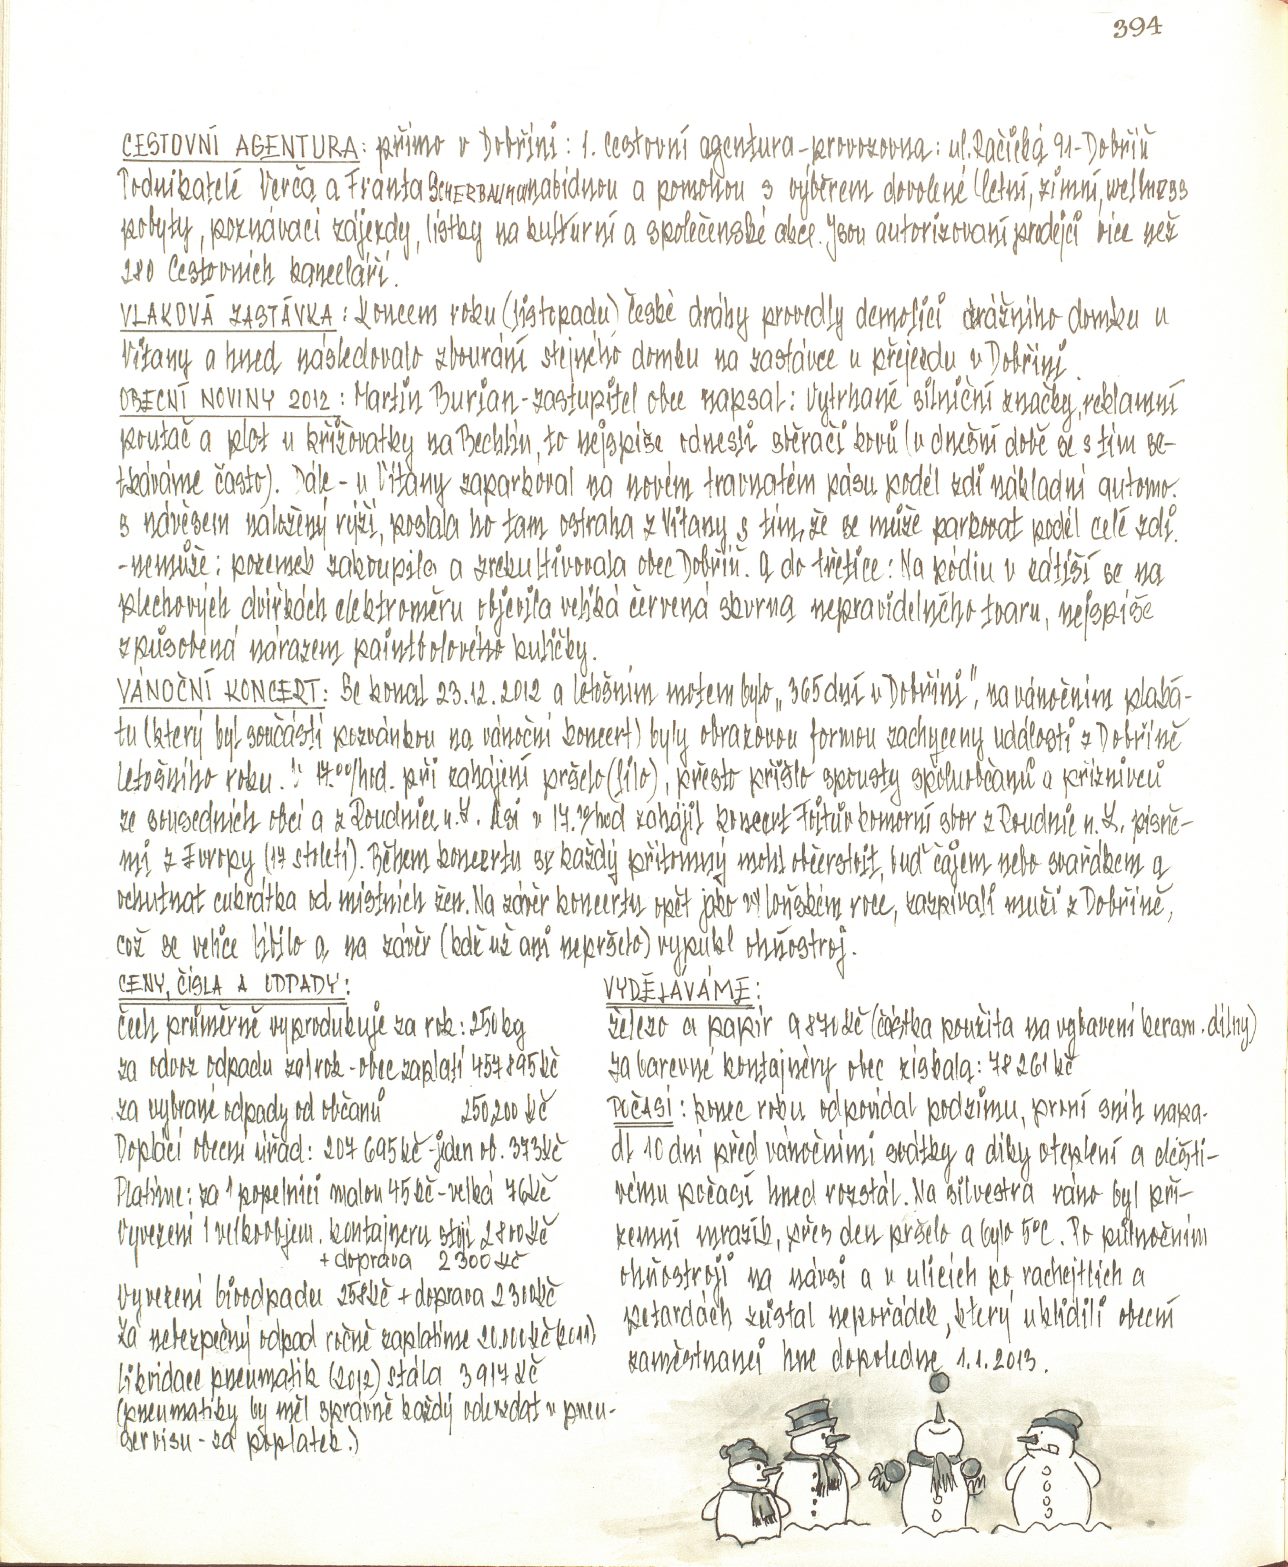 394
CESTOVNÍ AGENTURA: přímo v Dobříni: 1. Cestovní agentura-provozovna: ul. Račická 91-Dobříň
Podnikatelé Verča a Franta nabídnou a pomohou s výběrem dovolené (letní, zimní, wellness
pobyty, poznávací zájezdy, lístky na kulturní a společenské akce. Jsou autorizovaní prodejci více než
280 Cestovních kanceláří.
VLAKOVÁ ZASTÁVKA: Koncem roku (listopadu) České dráhy provedly demolici drážního domku u
Vitany a hned následovalo zbourání stejného domku na zastávce u přejezdu v Dobříni.
OBECNÍ NOVINY 2012: Martin Burian-zastupitel obce napsal: Vytrhané silniční značky, reklamní
poutač a plot u křižovatky na Bechlín, to nejspíše odnesli sběrači kovů (v dnešní době se s tím se-
tkáváme často). Dále - u Vitany zaparkoval na novém travnatém pásu podél zdi nákladní automo.
s návěsem naložený rýží, poslala ho tam ostraha z Vitany, s tím, že se může parkovat podél celé zdi.
-nemůže: pozemek zakoupila a zrekultivovala obec Dobříň. A do třetice: Na pódiu v zátiší se na
plechových dvířkách elektroměru objevila veliká červená skvrna nepravidelného tvaru, nejspíše
způsobená nárazem paintbolového kuličky.
VÁNOČNÍ KONCERT: Se konal 23.12.2012 a letošním motem bylo „365 dní v Dobříni", na vánočním plaká-
tu (který byl součástí pozvánkou na vánoční koncert) byly obrazovou formou zachyceny události z Dobříně
letošního roku. V 17.00/hod. při zahájení pršelo (lilo), přesto přišlo spousty spoluobčanů a příznivců
ze sousedních obcí a z Roudnice n.L. Asi v 17.10 hod zahájil koncert komorní sbor z Roudnic n.L. písně-
mi z Evropy (17 století). Během koncertu se každý přítomný mohl občerstvit, buď čajem nebo svařákem a
ochutnat cukrátka od místních žen. Na závěr koncertu opět jako v loňském roce, zazpívali muži z Dobříně,
což se velice líbilo a, na závěr (kdč už ani nepršelo) vypukl ohňostroj.
CENY, ČÍSLA A ODPADY:
Čech průměrně vyprodukuje za rok: 250kg
za odvoz odpadu za 1 rok - obec zaplatí 457 895 Kč
za vybrané odpady od občanů 250,200 Kč
Doplácí obecní úřad: 207 695 Kč - jeden ob. 373 Kč
Platíme: za 1 popelnici malou 45 Kč - velká 76 Kč
Vyvezení 1 velkoobjem. kontajneru stojí 2800 Kč
+ doprava 2300 Kč
Vyvezení bioodpadu 258 Kč + doprava 2300 Kč
Za nebezpečný odpad ročně zaplatíme 20.000 Kč (2011)
Likvidace pneumatik (2012) stála 3917 Kč
(pneumatiky by měl správně každý odevzdat v pneu-
servisu - za poplatek.)
VYDĚLÁVÁME:
železo a papír 9870 Kč (částka použita na vybavení keram. dílny)
Za barevné kontajnéry obec získala: 78 261 Kč
POČASÍ: konec roku odpovídal podzimu, první sníh napa-
dl 10 dní před vánočními svátky a díky oteplení a dešti-
vému počasí hned roztál. Na silvestra ráno byl pří-
zemní mrazík, přes den pršelo a bylo 5°C. Po půlnočním
ohňostroji na návsi a v ulicích po rachejtlích a
petardách zůstal nepořádek, který uklidili obecní
zaměstnanci hne dopoledne 1.1.2013.